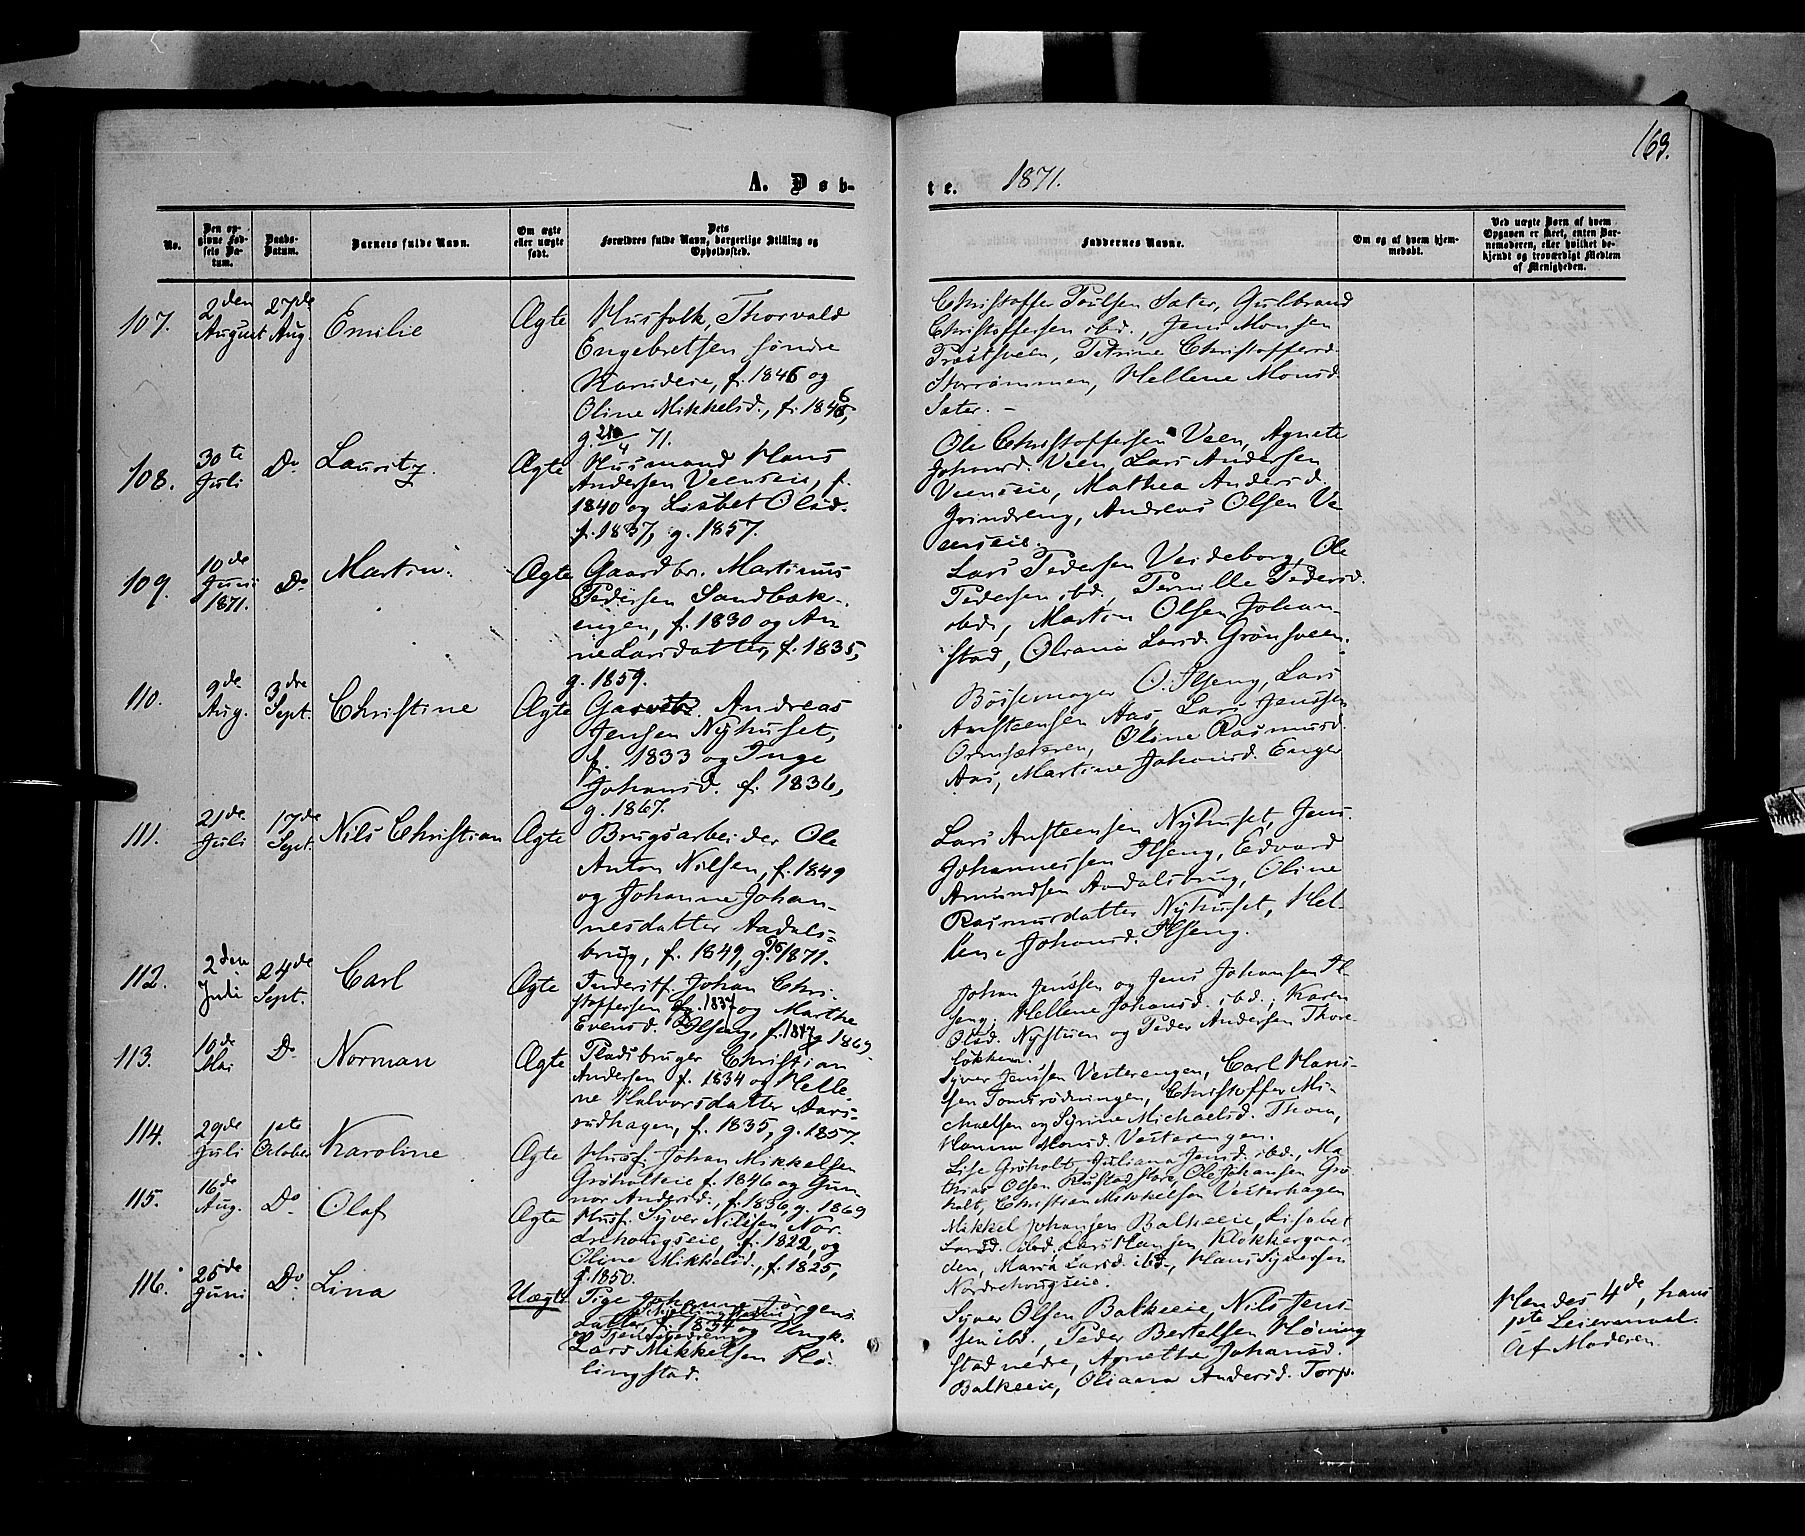 163.
A. Døb-
te. 1871.
No.
Den op-
givne Fød-
sels Da-
tum.
Daabs-
Datum.
Barnets fulde Navn.
Om ægte
eller uægte
født.
Dets
Forældres fulde Navn, borgerlige Stilling og
Opholdssted.
Faddernes Navne.
Om og af hvem hjem-
medøbt.
Ved uægte Børn af hvem
Opgaven er skeet, enten Bar-
nemoderen, eller hvilket be-
kjendt og troværdigt Medlem
af Menigheden.
107.
2den
August
27de
Aug.
Emilie
Ægte
Husfolk, Thorvald
Engebretsen søndre
f. 1846 og
Oline Mikkelsd., f. 1846,
g. 71.
Christoffer Poulsen Sater, Gulbrand
Christoffersen ibd., Jens Monsen
Petrine Christoffersd.
Storrømmen, Hellene Monsd.
Sater. -
108.
30te
Juli
Do
Lauritz.
Ægte
Husmand Hans
Andersen Veenseie, f.
1840 og Lisbet Olsd.
f. 1837, g. 1857.
Ole Christoffersen Veen, Agnete
Johansd. Veen, Lars Andersen
Veenseie, Mathea Andersd.
Grindreng, Andreas Olsen Ve-
enseie.
109.
10de
Juni
1871.
Do
Martin.
Ægte
Gaardbr. Martinus
Pedersen Sandbak-
engen, f. 1830 og An
ne Larsdatter, f. 1835,
g. 1859.
Lars Pedersen Veideborg, Ole
Pedersen ibd., Pernille Pedersd.
ibd., Martin Olsen Johan-
stad, Oliana Larsd. Grønsveen.
110.
9de
Aug.
3dre
Sept.
Christine
Ægte
Andreas
Jensen Nyhuset,
f. 1833 og Inge
Johansd. f. 1836,
g. 1867.
Bøssemager O. Ilseng, Lars
Ansteensen Aas, Lars Jenssen
Ormsæteren, Oline Rasmusd.
Aas, Martine Johansd. Enger
111.
21de
Juli
17de
Sept.
Nils Christian
Ægte
Brugsarbeider Ole
Anton Nilsen, f. 1849
og Johanne Johan-
nesdatter Aadals-
brug, f. 1849, g. 1871.
Lars Ansteensen Nyhuset, Jens
Johannessen Ilseng, Edvard
Amundsen Aadalsbrug, Oline
Rasmusdatter Nyhuset, Hel-
lene Johansd. Ilseng.
112.
2den
Juli
24de
Sept.
Carl
Ægte
Inderst. Johan Chri-
stoffersen f. 1837 og Marthe
Evensd. Ilseng, f. g 1869.
Johan Jenssen og Jens Johansen Il-
seng, Hellene Johansd. ibd., Karen
Olsd. Nystuen og Peder Andersen Thore-
løkken.
113.
10de
Mai
Do
Norman
Ægte
Pladsbruger Christian
Andersen f. 1834 og Helle-
ne Halvorsdatter Aars-
rudhagen, f. 1835, g. 1857.
Syver Jenssen Vesterengen, Carl Hans-
sen Tomsrødningen, Christoffer Mi-
chaelsen og Syrine Michaelsd. Thom,
Hanna Monsd. Vesterengen.
114.
29de
Juli
1ste
October
Karoline
Ægte
Husf. Johan Mikkelsen
Grøholteie f. 1846 og Gun-
nor Andersd., f. 1836, g. 1869
Lise Grøholt, Juliana Jensd. ibd., Ma-
thias Olsen Rustadstore, Ole Johansen Grø-
holt, Christian Mikkelsen Vesterhagen
115.
16de
Aug.
Do
Olaf
Ægte
Husf. Syver Nilssen Nor-
drehougseie, f. 1822, og
Oline Mikkelsd., f. 1825,
g. 1850.
Mikkel Johansen Balkeeie, Lisabet
Larsd. ibd., Lars Hansen, Klokkergaar-
den, Maria Larsd. ibd., Hans Syversen
Nordrehougseie.
116.
25de
Juni
Do
Lina
Uægte
Pige Johanne Jørgens
datter, f. 1834 og Ungk.
Lars Mikkelsen Hø-
lingstad.
Syver Olsen Balkeeie, Nils Jens-
sen ibd., Peder Bertelsen Høling
stad nedre, Agnethe Johansd.
Balkeeie, Oliana Andersd. Torp.
Hendes 4de, hans
1ste Leiermaal.
Af Moderen.